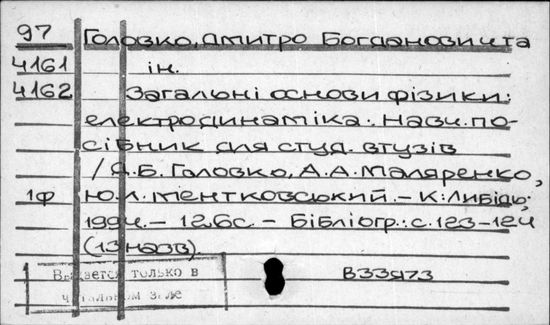 97 Головко, Дмитро Богданович та
4161 ін.
4162 Загальні основи фізики:
електродинаміка: Навч. по-
сібник для студ. втузів
/ Д.Б. Головко, А.А. Маляренко,
1ф Ю.Л. Ментковський. – К: Либідь,
1994. – 126с. – Бібліогр.: с. 123-124
(13 назв).
Выдается только в В33973
читальном зале